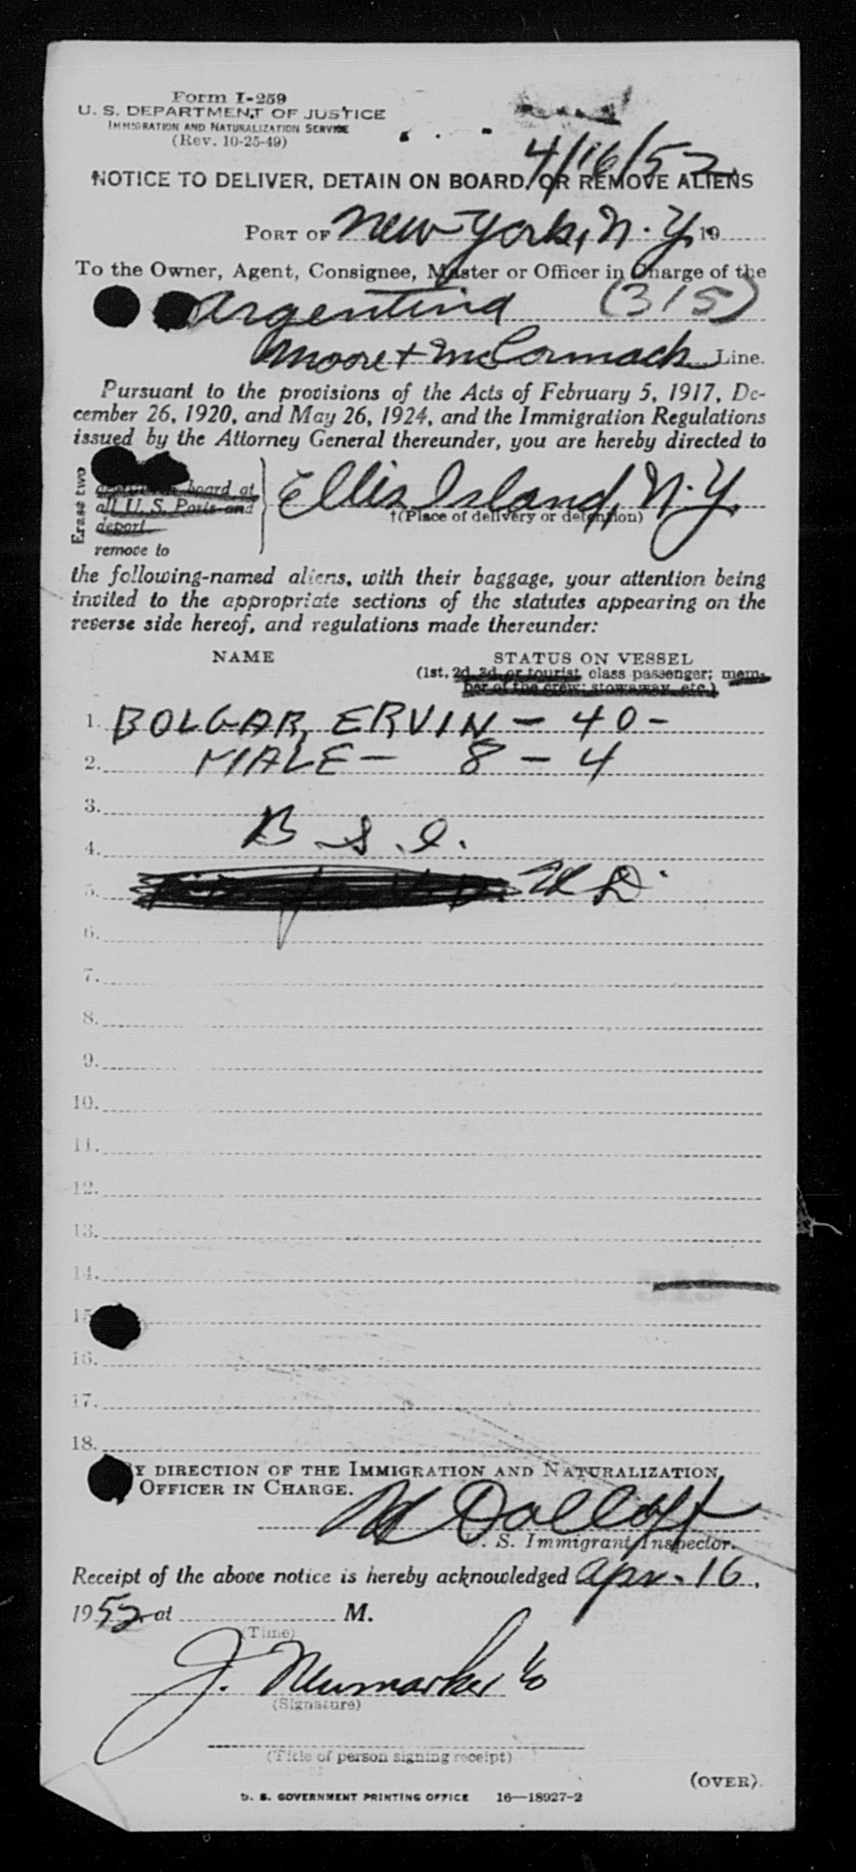 Form I-259
U. S. DEPARTMENT OF JUSTICE
IMMIGRATION AND NATURALIZATION SERVICE
(Rev. 10-25-49)
4/16/52
NOTICE TO DELIVER, DETAIN ON BOARD, OR REMOVE ALIENS
PORT OF New York, N.Y. 19
To the Owner, Agent, Consignee, Master or Officer in Charge of the
Argentina (315)
Moore + McCormack Line.
Pursuant to the provisions of the Acts of February 5, 1917, De-
cember 26, 1920, and May 26, 1924, and the Immigration Regulations
issued by the Attorney General thereunder, you are hereby directed to
Erase two
board at
all U. S. Ports and
deport
remove to
Ellis Island, N.Y.
†(Place of delivery or detention)
the following-named aliens, with their baggage, your attention being
invited to the appropriate sections of the statutes appearing on the
reverse side hereof, and regulations made thereunder:
NAME STATUS ON VESSEL
(1st, 2d, 3d, or tourist class passenger; mem-
ber of the crew; stowaway, etc.)
1. BOLGAR, ERVIN - 40 -
2. MALE - 8 - 4
3.
B.S.I.
4.
5. D.
6.
7.
8.
9.
10.
11.
12.
13.
14.
15
16.
17.
18.
BY DIRECTION OF THE IMMIGRATION AND NATURALIZATION
OFFICER IN CHARGE.
Dolloff
U. S. Immigrant Inspector.
Receipt of the above notice is hereby acknowledged Apr. 16,
1952 at M.
(Time)
J. Newmarker
(Signature)
(Title of person signing receipt)
(OVER)
U. S. GOVERNMENT PRINTING OFFICE 16—18927-2